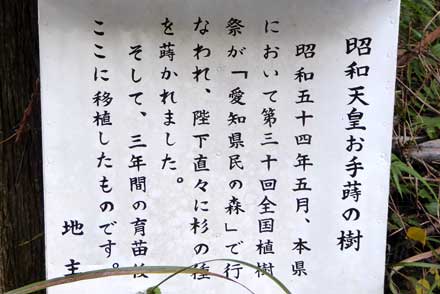 昭和天皇お手蒔の樹
昭和五十四年五月、本県
において第三十回全国植樹
祭が「愛知県民の森」で行
なわれ、陛下直々に杉の種
を蒔かれました。
そして、三年間の育苗後
ここに移植したものです。
地主